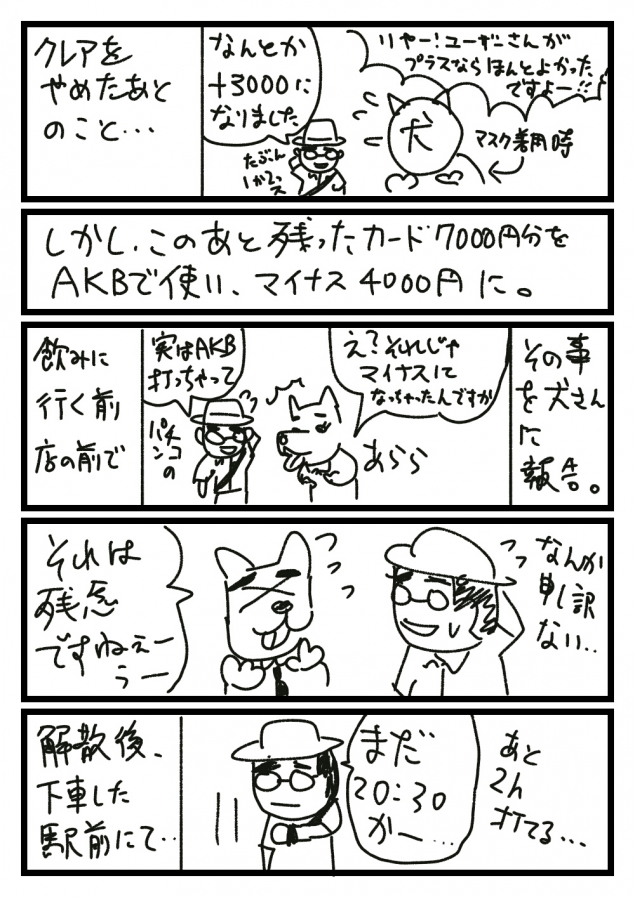 リヤー!ユーザーさんが
プラスならほんとよかった
ですよー!!
犬
マスク着用時
なんとか
+3000に
なりました
たぶん
クレアを
やめたあと
のこと…
しかし、このあと残ったカード7000円分を
AKBで使い、マイナス4000円に。
その事
を犬さん
に
報告。
え?それじゃ
マイナスに
なっちゃったんですか
あらら
実はAKB
打っちゃって
パチ
ンコの
飲みに
行く前
店の前で
なんか
申し訳
ない..
それは
残念
ですねぇー
ぅー
あと
2h
打てる…
まだ
20:30
かー…
解散後、
下車した
駅前にて‥